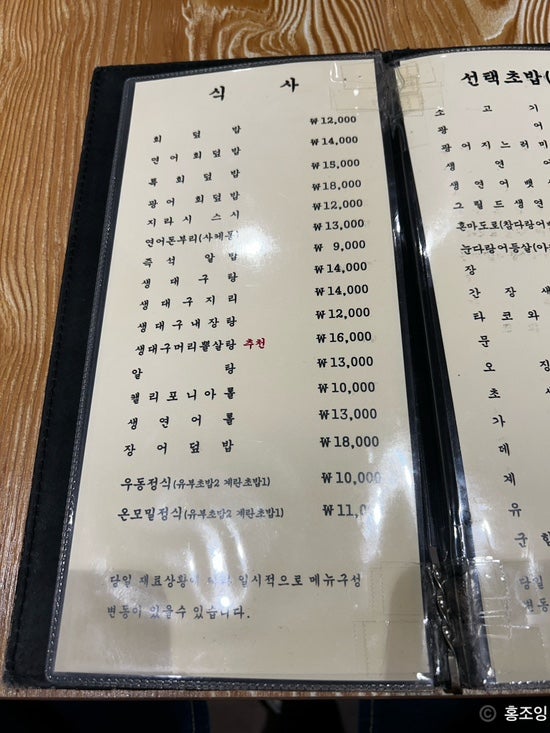 식 사
회 덮 밥 ₩12,000
연 어 회 덮 밥 ₩14,000
특 회 덮 밥 ₩15,000
광 어 회 덮 밥 ₩18,000
지 라 시 스 시 ₩12,000
연어돈부리(사케동) ₩13,000
즉 석 알 밥 ₩ 9,000
생 대 구 탕 ₩14,000
생 대 구 지 리 ₩14,000
생 대 구 내 장 탕 ₩12,000
생대구머리뽈살탕 추천 ₩16,000
알 탕 ₩13,000
캘 리 포 니 아 롤 ₩10,000
생 연 어 롤 ₩13,000
장 어 덮 밥 ₩18,000
우동정식(유부초밥2 계란초밥1) ₩10,000
온모밀정식(유부초밥2 계란초밥1) ₩11,0
당일 재료상황에 일시적으로 메뉴구성
변동이 있을수 있습니다.
선택초밥(
소 고 기
광 어
광 어 지 느 러 미
생 연 어
생 연 어 뱃
그 릴 드 생 연
혼마도로(참다랑어
눈다랑어등살(아
장
간 장 새
타 코 와
문
오 징
초
가
데
계
유
군 함
당일
변동
© 홍조잉